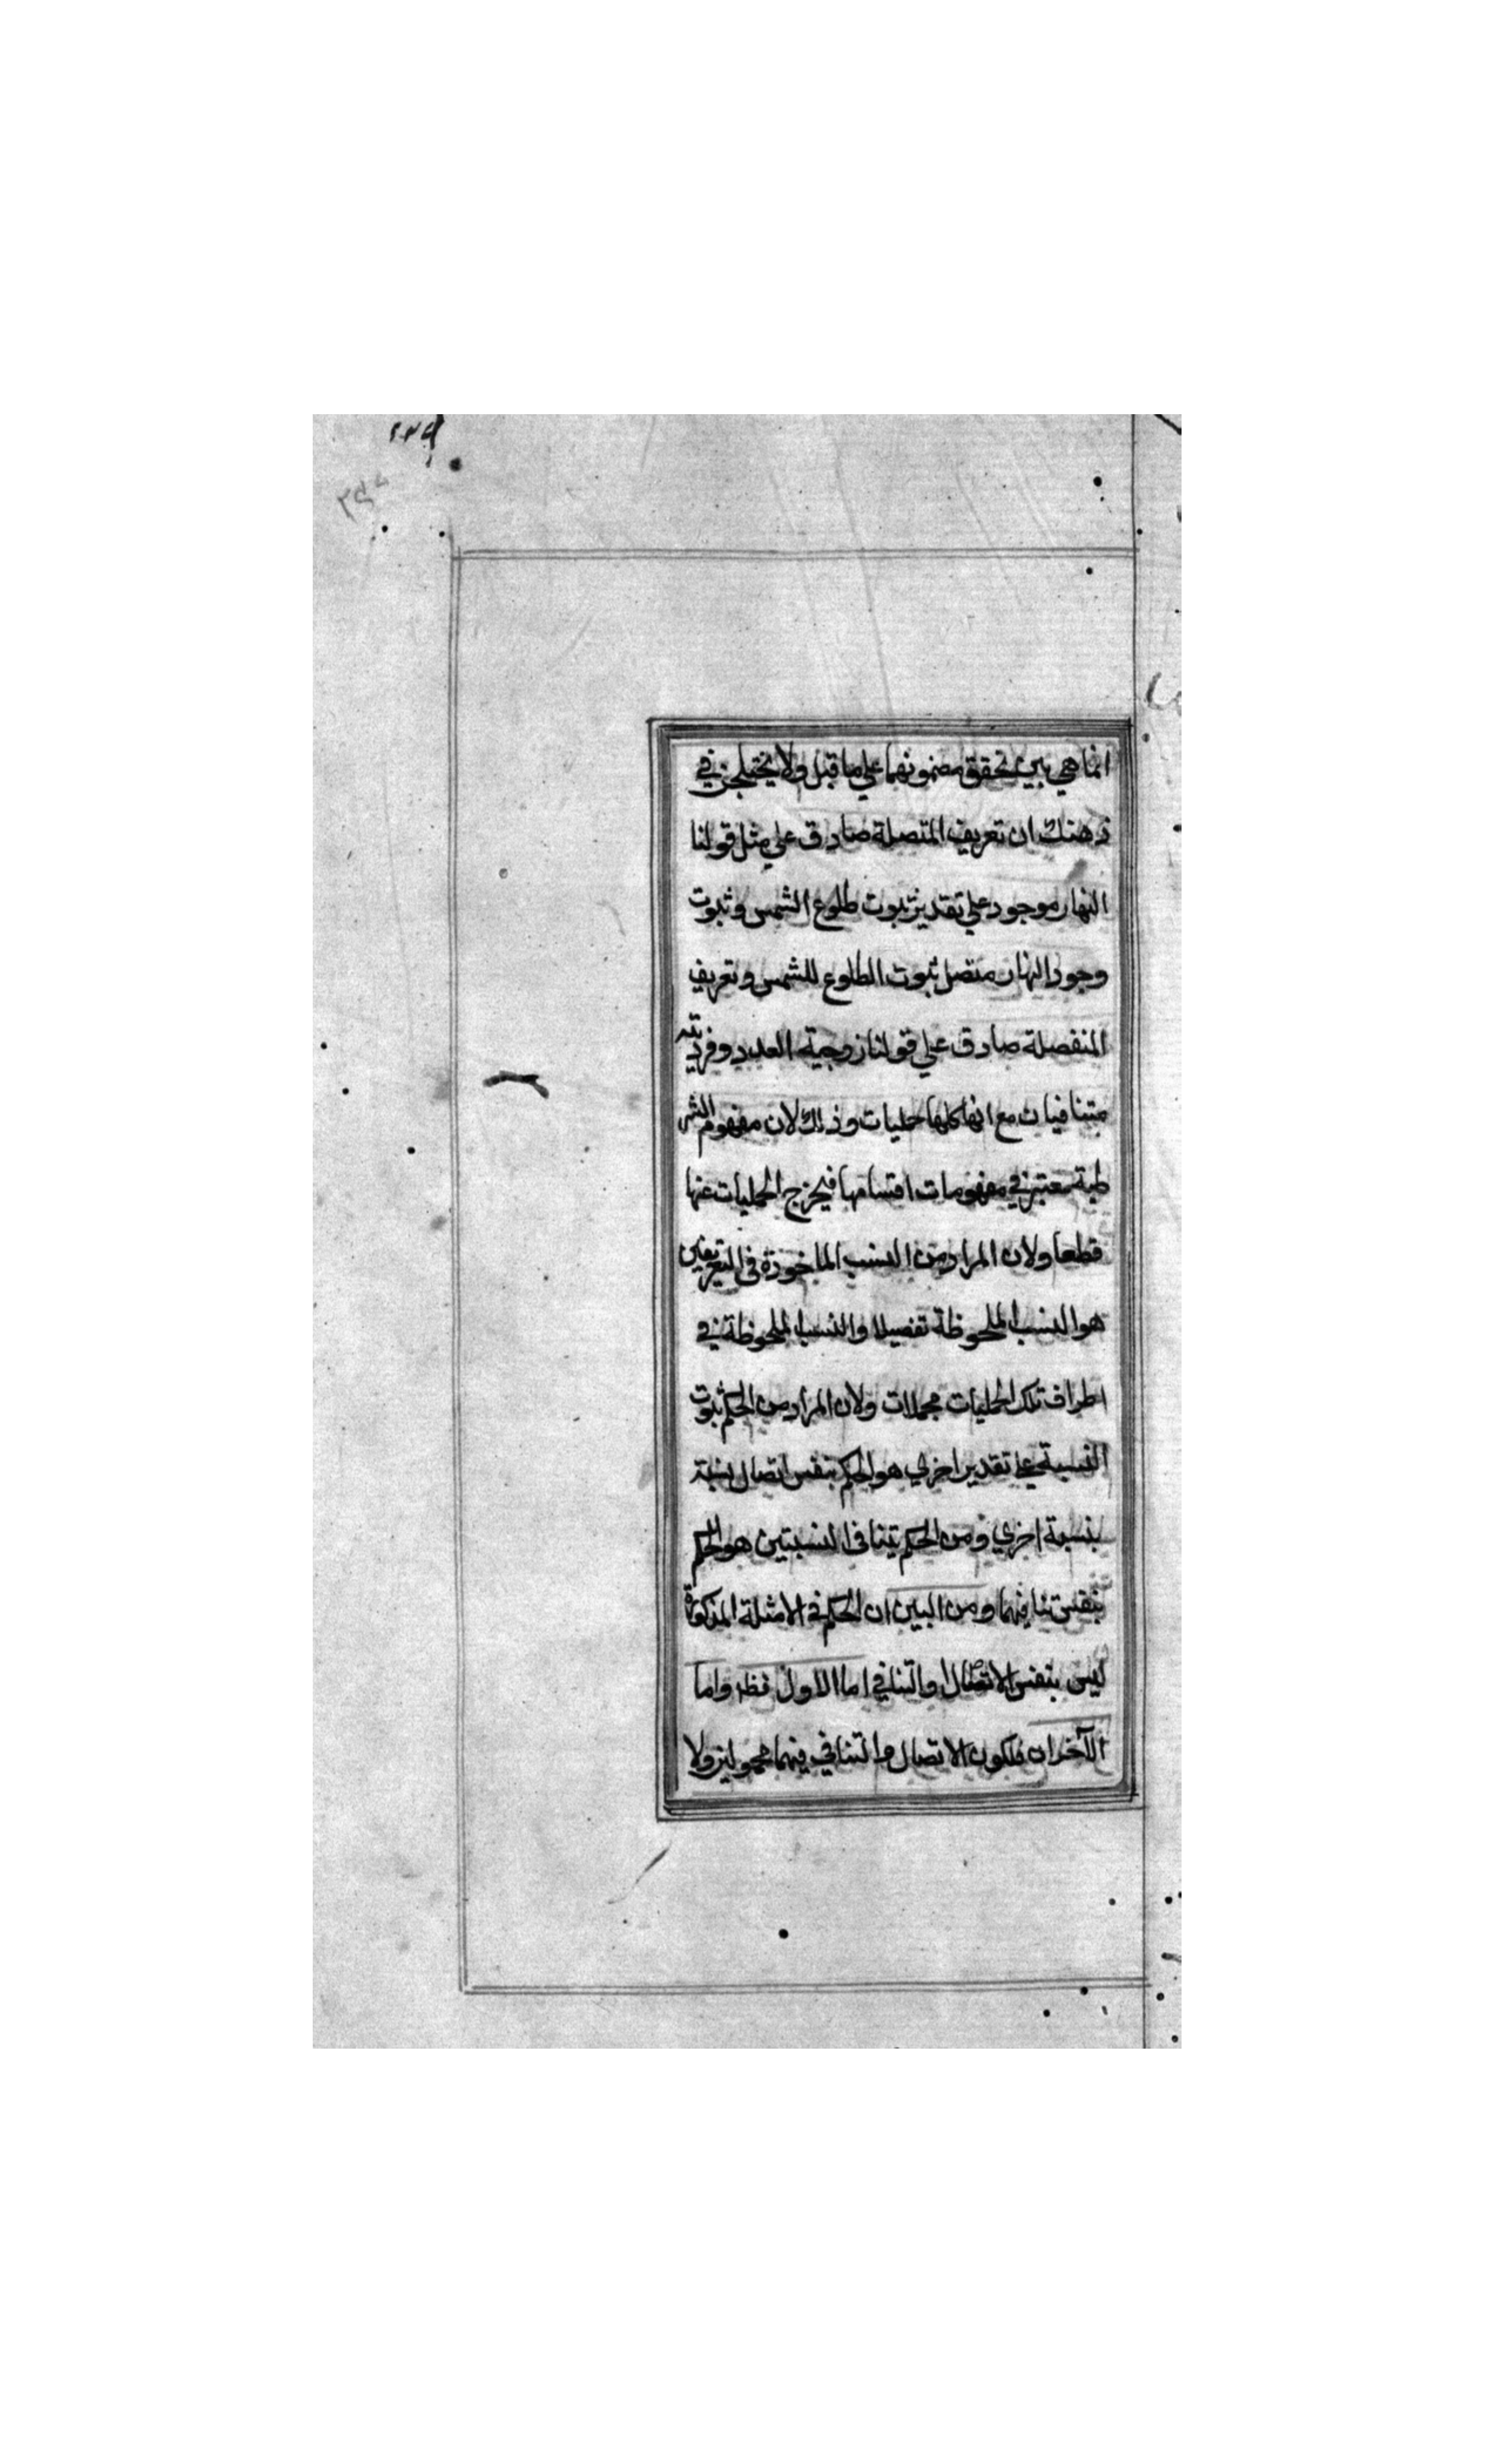 انما هي بين تحقق مضمونهما علي ما قيل ولا يختلجن في
ذهنك ان تعريف المتصلة صادق علي مثل قولنا
النهار موجود علي تقدير ثبوت طلوع الشمس وثبوت
وجود النهار متصل ثبوت الطلوع للشمس وتعريف
المنفصلة صادق علي قولنا زوجية العدد وفرديته
متنافيان مع انها كلها حمليات وذلك لان مفهوم الشر
طية معتبر في مفهومات اقسامها فيخرج الحمليات عنها
قطعا ولان المراد من النسب الماخوذة في التعريفين
هو النسب الملحوظة تفصيلا والنسب الملحوظة في
اطراف تلك الحمليات مجملات ولان المراد من الحكم ثبوت
النسبة علي تقدير اخري هو الحكم بنفس اتصال نسبة
بنسبة اخري ومن الحكم بتنافي النسبتين هو الحكم
بنفس تنافيهما ومن البين ان الحكم في الامثلة المذكورة
ليس بنفس الاتصال والتنافي اما الاول فظ واما
الآخران فلكون الاتصال والتنافي فيهما محمولين ولا